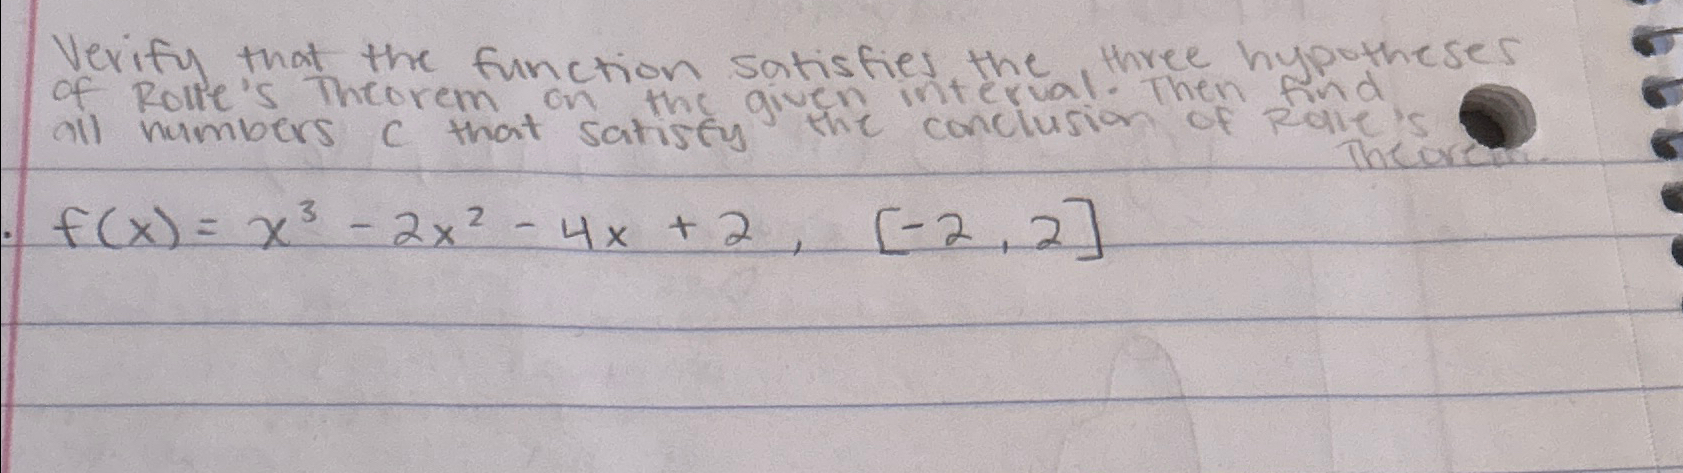 Verify that the function satisfies the three hypotheses
of Rolle's Theorem on the given interval. Then find
all numbers c that satisfy the conclusion of Rolle's
Theorem.
. f(x) = x³ - 2x² - 4x + 2, [-2, 2]